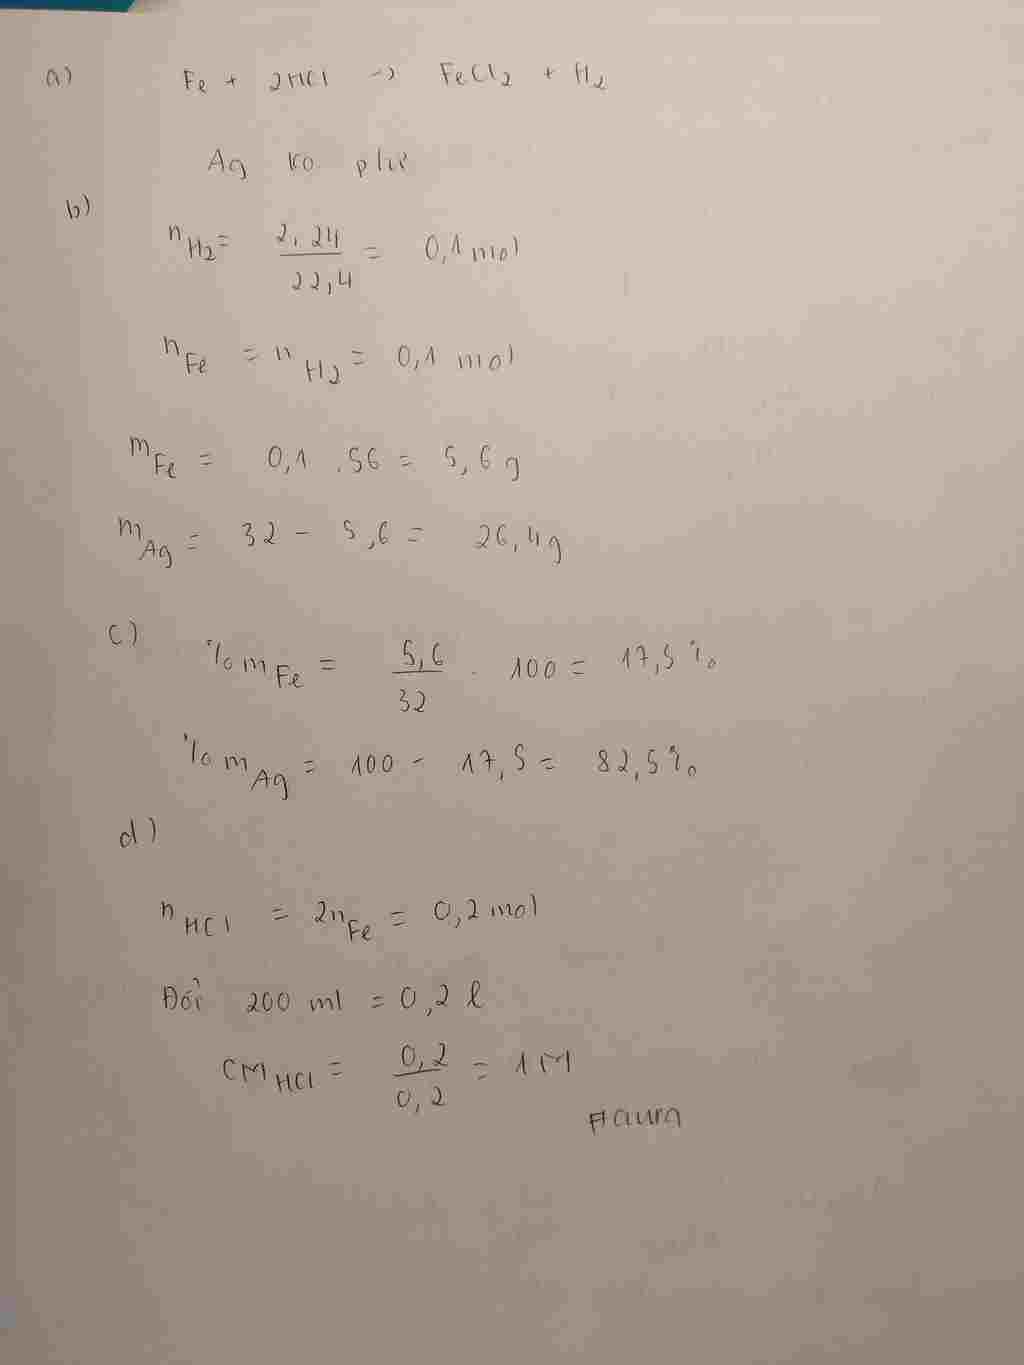 a) Fe + 2HCl -> FeCl2 + H2
Ag ko pư
b)
nH2 = 2,24/22,4 = 0,1 mol
nFe = nH2 = 0,1 mol
mFe = 0,1 . 56 = 5,6 g
mAg = 32 - 5,6 = 26,4g
c) %mFe = 5,6/32 . 100 = 17,5%
%mAg = 100 - 17,5 = 82,5%
d)
nHCl = 2nFe = 0,2 mol
Đổi 200 ml = 0,2 l
CM HCl = 0,2/0,2 = 1M